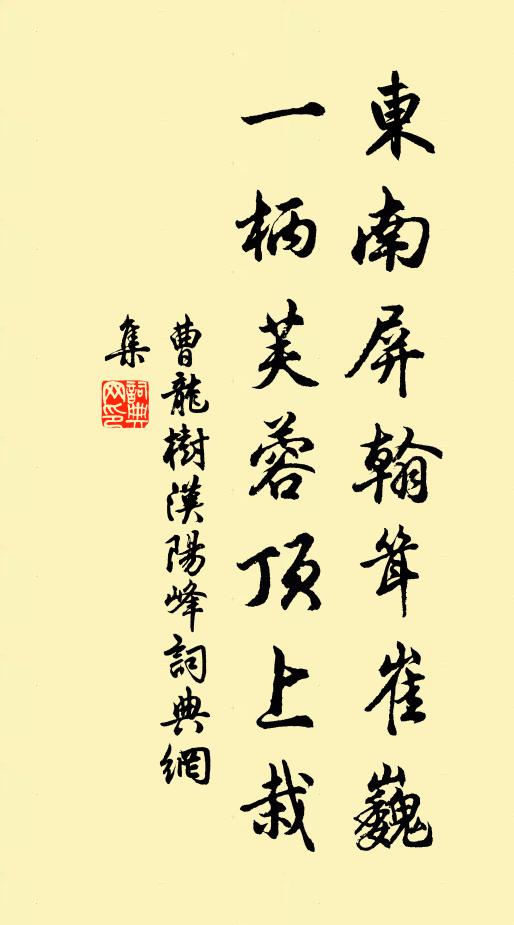 東南屏翰耸崔巍
一柄芙蓉頂上栽
曹龍樹漢陽峰詞典網
集
詞典
网印